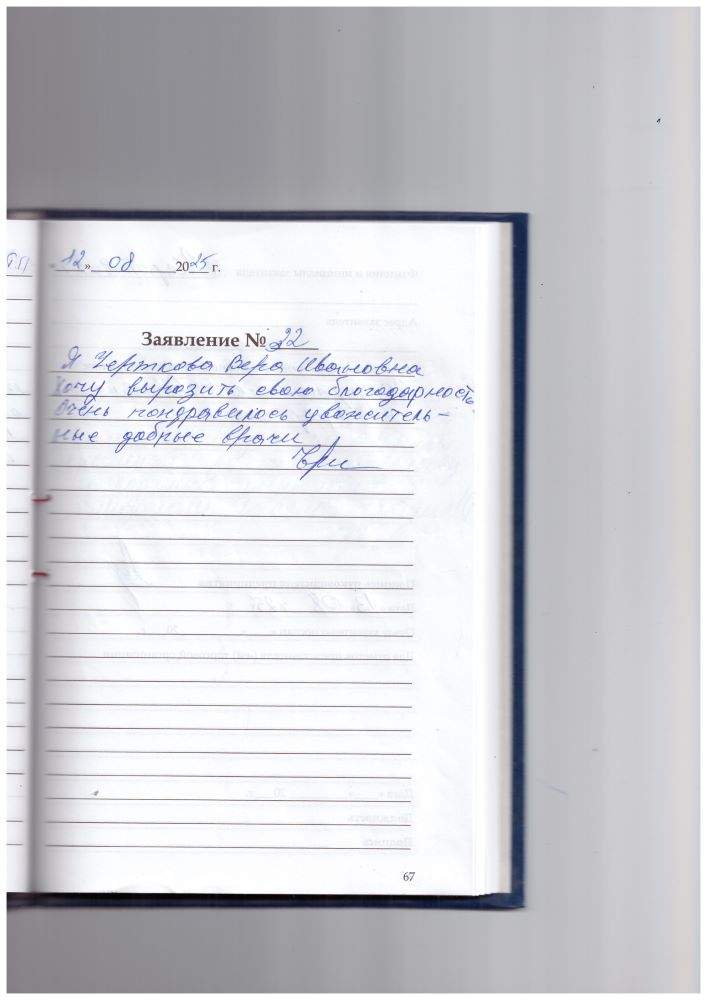 Т.П
12 » 08 2025 г.
Заявление № 22
Я Черткова Вера Ивановна
хочу выразить свою благодарность
очень пондравилось уважитель-
ные добрые врачи
67